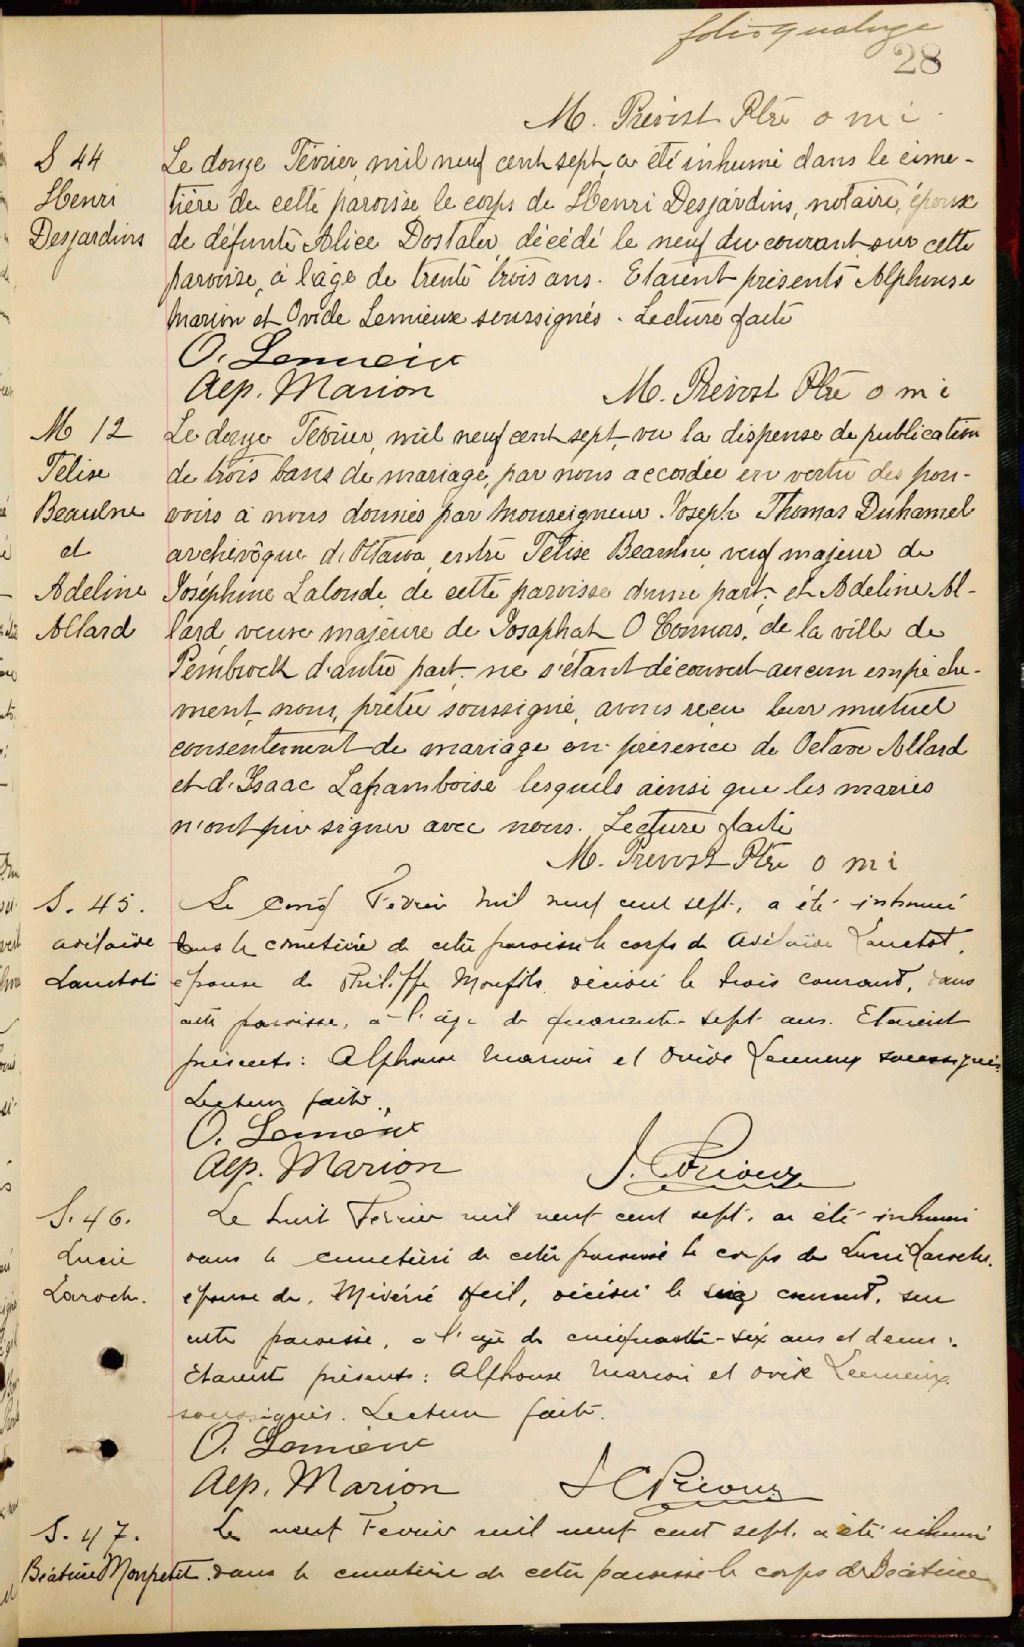 folio quatorze
28
M. Prévost Ptre o m i
S 44
Henri
Desjardins
Le douze Février mil neuf cent sept, a été inhumé dans le cime-
tière de cette paroisse le corps de Henri Desjardins, notaire, époux
de défunte Alice Dostaler, décédé le neuf du courant sur cette
paroisse, à l'âge de trente trois ans. Etaient présents Alphonse
Marion et Ovide Lemieux soussignés. Lecture faite
O. Lemieux
Alp. Marion
M. Prévost Ptre o m i
M 12
Télise
Beaulne
et
Adeline
Allard
Le douze Février, mil neuf cent sept, vu la dispense de publication
de trois bans de mariage, par nous accordée en vertu des pou-
voirs à nous donnés par Monseigneur Joseph Thomas Duhamel
archevêque d'Ottawa, entre Télise Beaulne, veuf majeur de
Joséphine Lalonde, de cette paroisse d'une part, et Adeline Al-
lard, veuve majeure de Josaphat O Connors, de la ville de
Pembrock d'autre part, ne s'étant découvert aucun empêche-
ment, nous, prêtre soussigné, avons reçu leur mutuel
consentement de mariage en présence de Octave Allard
et d'Isaac Laframboise lesquels ainsi que les mariés
n'ont pu signer avec nous. Lecture faite
M. Prevost Ptre o m i
S. 45.
Adélaïde
Lanctot
Le cinq Fevrier mil neuf cent sept, a été inhumé
dans le cimetière de cette paroisse le corps de Adélaïde Lanctot,
épouse de Philippe Monfils, décédé le trois courant, dans
cette paroisse, à l'âge de quarante-sept ans. Etaient
présents: Alphonse Marion et Ovide Lemieux soussignés
Lecture faite.
O. Lemieux
Alp. Marion
S. 46.
Lucie
Laroche.
Le huit Fevrier mil neuf cent sept, a été inhumé
dans le cimetière de cette paroisse le corps de Lucie Laroche.
épouse de, décédé le cinq courant, sur
cette paroisse, à l'âge de cinquante-six ans et demi.
Etaient présents: Alphonse Marion et Ovide Lemieux
soussignés. Lecture faite.
O. Lemieux
Alp. Marion
S. 47.
Béatrice Monpetit
Le neuf Fevrier mil neuf cent sept, a été inhumé
dans le cimetière de cette paroisse le corps de Béatrice